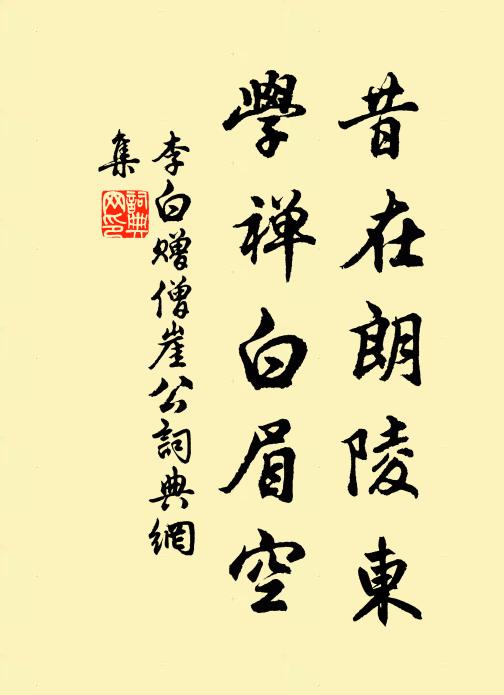 昔在朗陵東
學禅白眉空
李白赠僧崖公詞典網
集
詞典网印